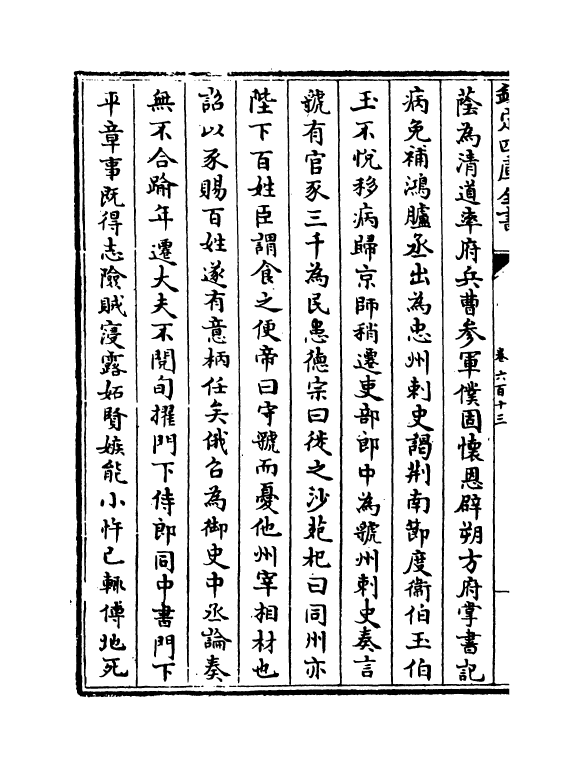 欽定四庫全書
卷六百十三
蔭為清道率府兵曹參軍僕固懷恩辟朔方府掌書記
病免補鴻臚丞出為忠州刺史謁荆南節度衛伯玉伯
玉不悅移病歸京師稍遷吏部郎中為虢州刺史奏言
虢有官豕三千為民患德宗曰徙之沙苑杞曰同州亦
陛下百姓臣謂食之便帝曰守虢而憂他州宰相材也
詔以豕賜百姓遂有意柄任矣俄召為御史中丞論奏
無不合踰年遷大夫不閱旬擢門下侍郎同中書門下
平章事既得志險賊寖露妬賢嫉能小忤己輒傅地死